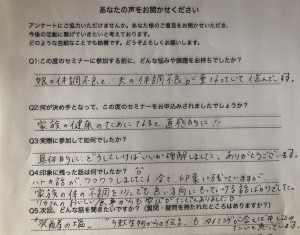 あなたの声をお聞かせください
アンケートにご協力いただけませんか。あなた様のご意見をお聞かせいただき、
今後の活動に繋げていきたいと考えております。
どのような些細なことでも結構です。どうぞよろしくお願いします。
Q1:この度のセミナーに参加する前に、どんな悩みや課題をお持ちでしたか?
娘の体調不良と、夫の体調不良が重なっていて悩んでいます。
Q2:何が決め手となって、この度のセミナーをお申込みされましたでしょうか?
家族の健康のためになると直感的に!!
Q3:実際に参加して如何でしたか?
具体的に、どうしていけばいいか理解しまして、ありがとうございます。
Q4:印象に残った話は何でしたか?
ハトの話が、ワクワクしましても
家族の体の不調を少しでも良い方向にもっていける話ばかりでした。
Q5:次回、どんな話を聞きたいですか?(質問・疑問を持たれたところはありますか?)